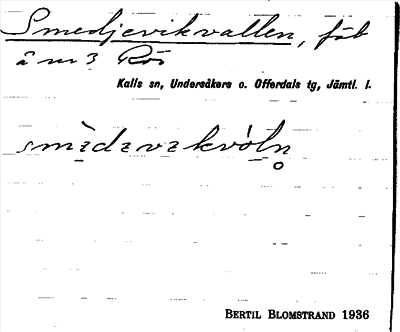 Smedjevikvallen, fäb
å nr 3 Rör
Kalls sn, Undersåkers o. Offerdals tg, Jämtl. l.
smìdɜvɜkvòln̥
BERTIL BLOMSTRAND 1936